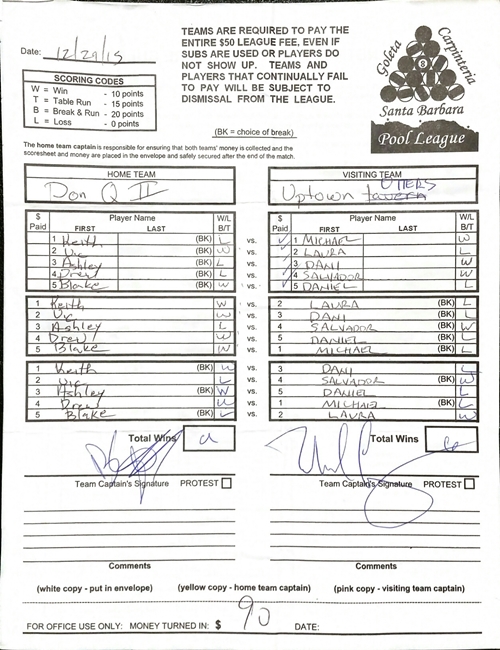 Date: 12/29/15
TEAMS ARE REQUIRED TO PAY THE
ENTIRE $50 LEAGUE FEE, EVEN IF
SUBS ARE USED OR PLAYERS DO
NOT SHOW UP. TEAMS AND
PLAYERS THAT CONTINUALLY FAIL
TO PAY WILL BE SUBJECT TO
DISMISSAL FROM THE LEAGUE.
Goleta
Carpinteria
8
Santa Barbara
Pool League
SCORING CODES
W = Win - 10 points
T = Table Run - 15 points
B = Break & Run - 20 points
L = Loss - 0 points
(BK = choice of break)
The home team captain is responsible for ensuring that both teams' money is collected and the
scoresheet and money are placed in the envelope and safely secured after the end of the match.
HOME TEAM VISITING TEAM
Don Q II Uptown UTTERS
$ Paid Player Name FIRST LAST W/L B/T $ Paid Player Name FIRST LAST W/L B/T
1 Keith (BK) L vs. 1 MICHAEL W
2 Vic (BK) W vs. 2 LAURA L
3 Ashley (BK) L vs. 3 DANI W
4 Drew (BK) L vs. 4 SALVADOR W
5 Blake (BK) W vs. 5 DANIEL L
1 Keith W vs. 2 LAURA (BK) L
2 Vic W vs. 3 DANI (BK) L
3 Ashley L vs. 4 SALVADOR (BK) W
4 Drew W vs. 5 DANIEL (BK) L
5 Blake W vs. 1 MICHAEL (BK) L
1 Keith (BK) W vs. 3 DANI L
2 Vic L vs. 4 SALVADOR (BK) W
3 Ashley (BK) W vs. 5 DANIEL L
4 Drew W vs. 1 MICHAEL (BK) L
5 Blake (BK) L vs. 2 LAURA W
Total Wins 9 Total Wins 6
Team Captain's Signature PROTEST Team Captain's Signature PROTEST
Comments Comments
(white copy - put in envelope) (yellow copy - home team captain) (pink copy - visiting team captain)
FOR OFFICE USE ONLY: MONEY TURNED IN: $ 90 DATE: